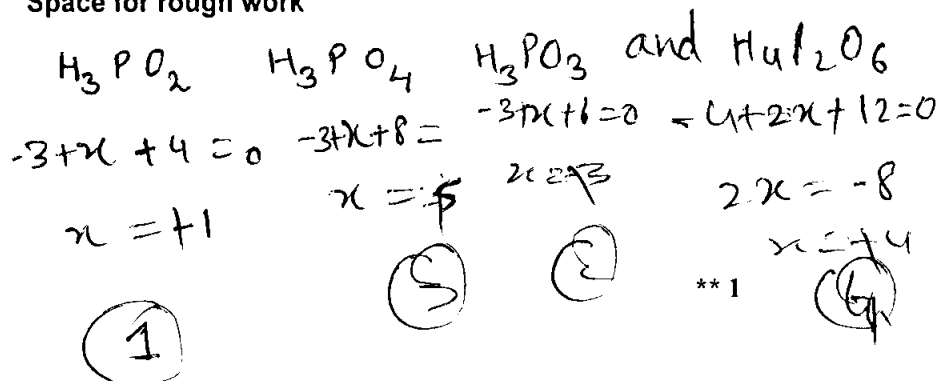 Space for rough work
H3PO2 H3PO4 H3PO3 and H4P2O6
-3+x+4=0 -3+x+8= -3+x+6=0 -4+2x+12=0
x=+1 x=5 x=+3 2x=-8
x=+4
1 5 ** 1 4